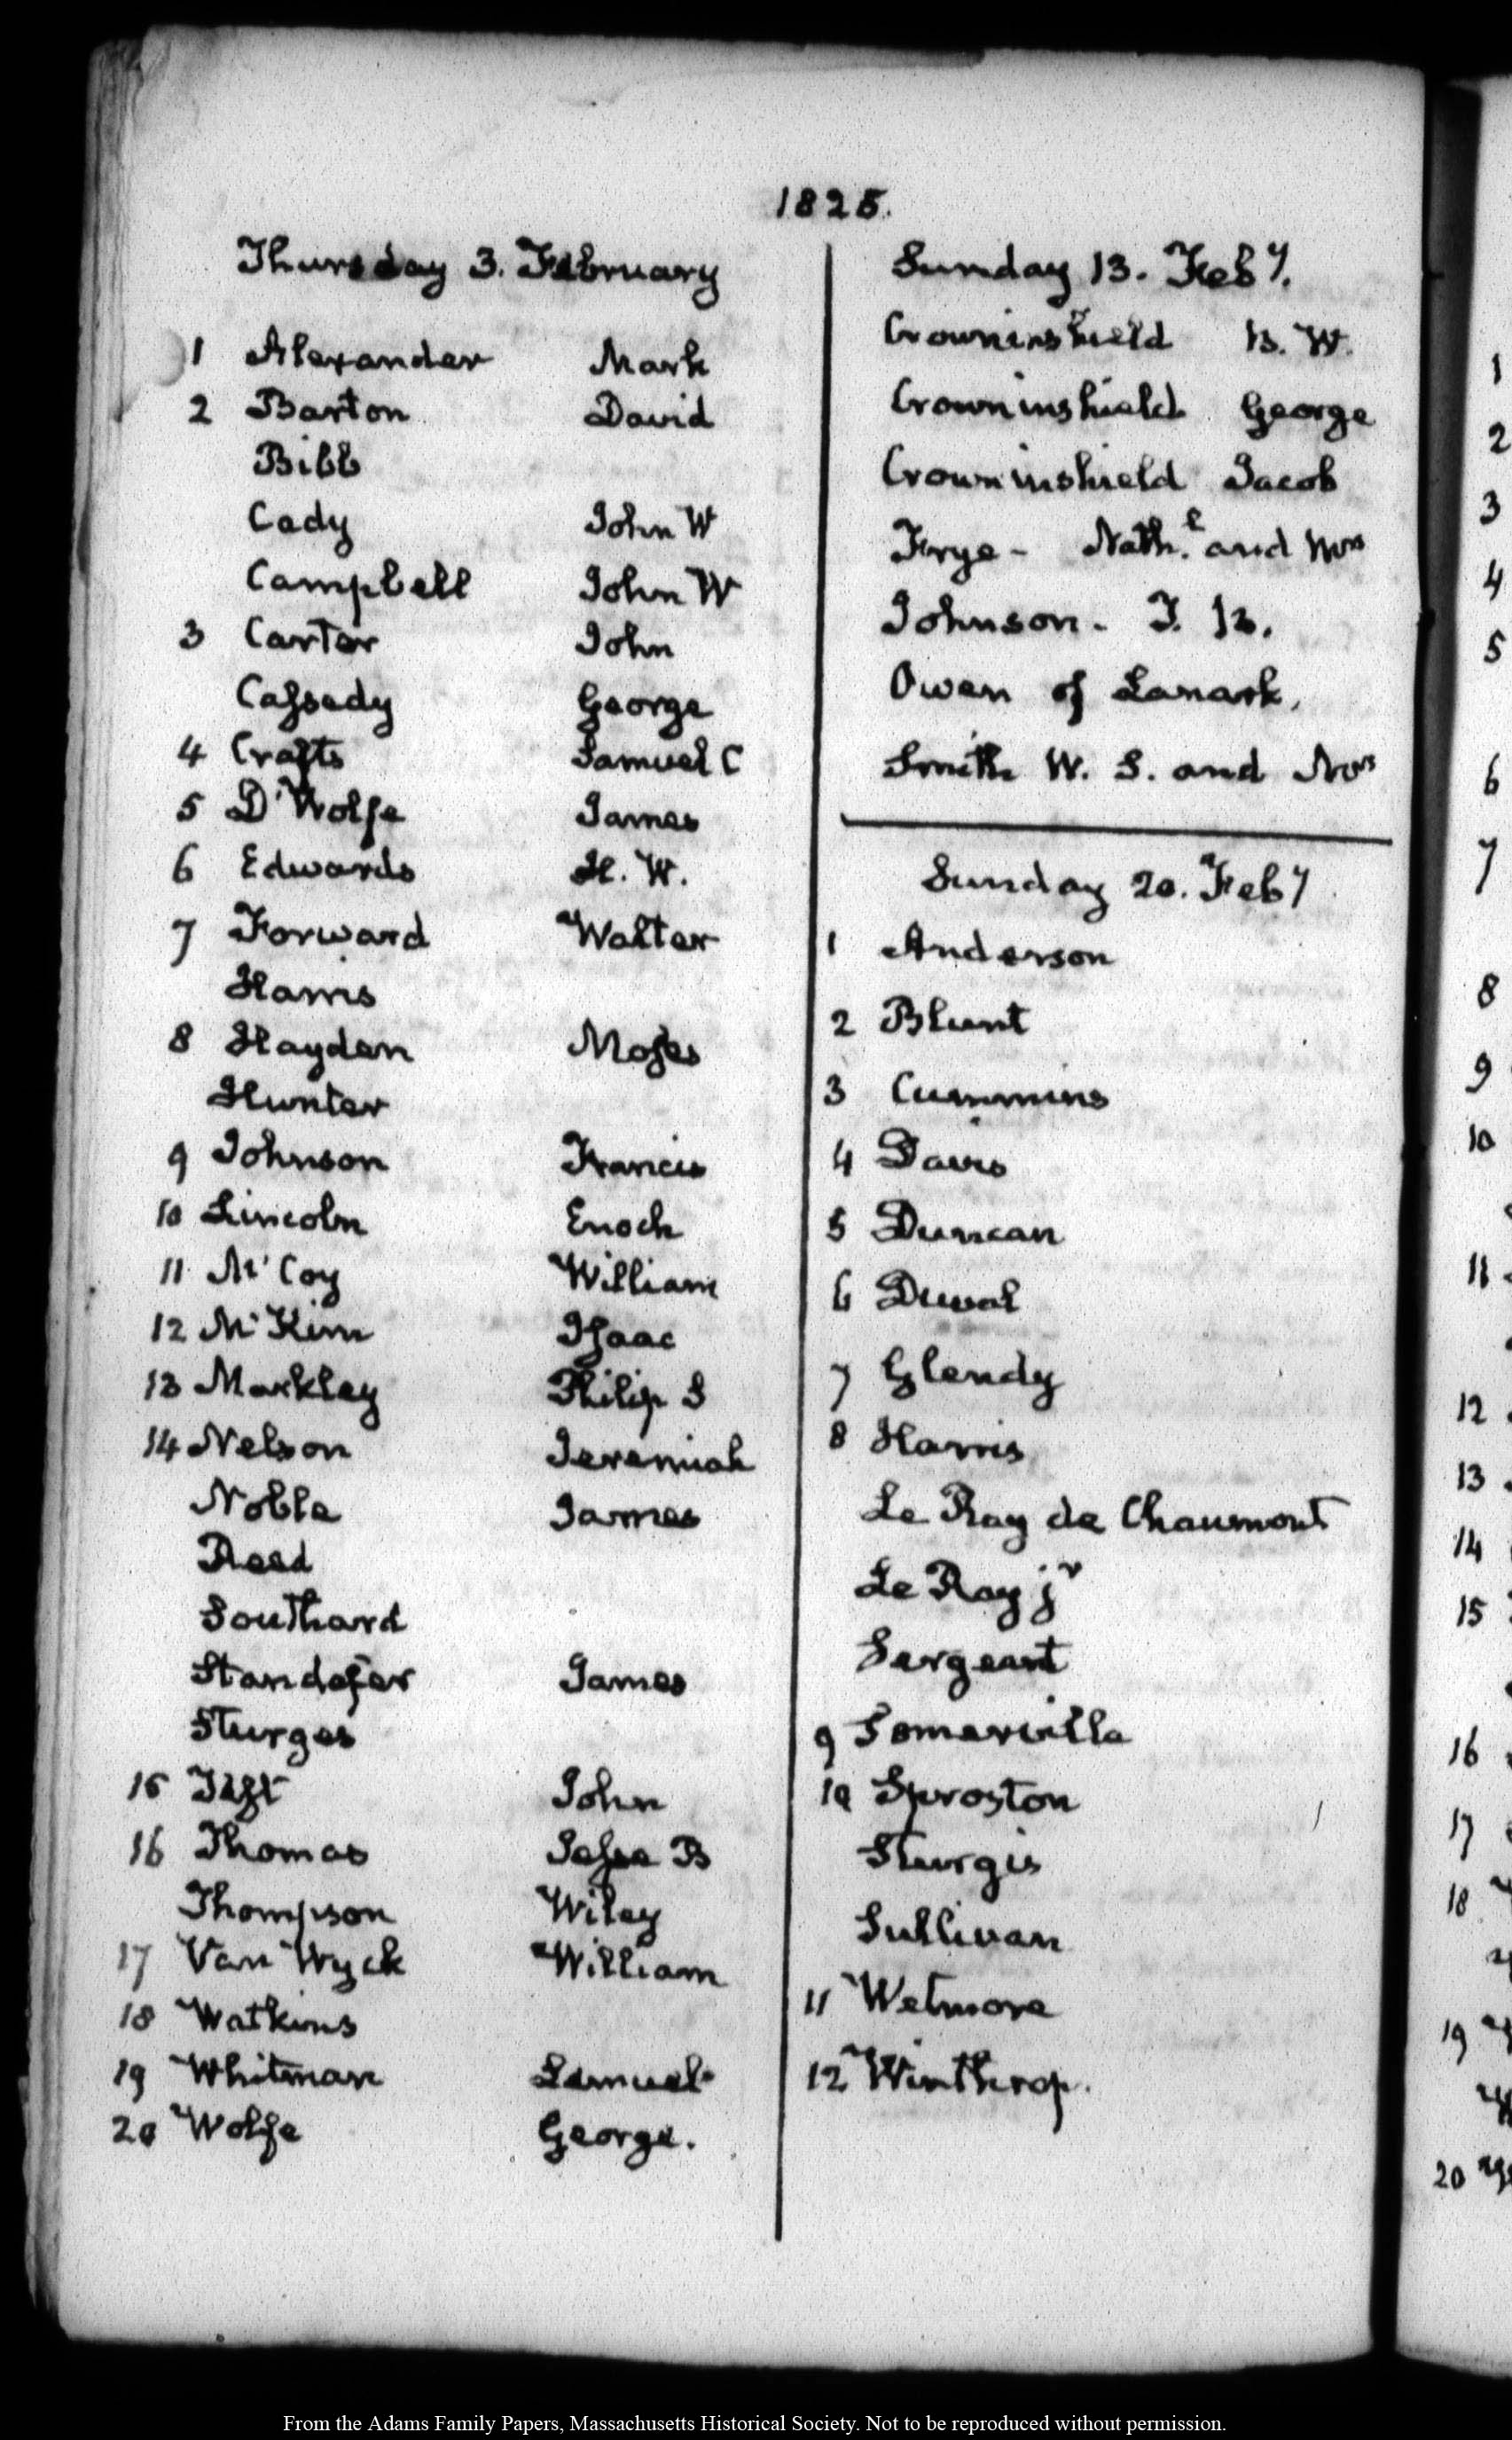 1825.
Thursday 3. February
1 Alexander Mark
2 Barton David
Bibb
Cady John W
Campbell John W
3 Carter John
Caſsedy George
4 Crafts Samuel C
5 D'Wolfe James
6 Edwards H. W.
7 Forward Walter
Harris
8 Hayden Moſes
Hunter
9 Johnson Francis
10 Lincoln Enoch
11 McCoy William
12 McKim Iſaac
13 Markley Philip S
14 Nelson Jeremiah
Noble James
Reed
Southard
Standefer James
Sturges
15 Test John
16 Thomas Jeſse B
Thompson Wiley
17 Van Wyck William
18 Watkins
19 Whitman Lemuel
20 Wolfe George.
Sunday 13. Feby.
Crowninshield B. W.
Crowninshield George
Crowninshield Jacob
Frye - Nathl. and Mrs
Johnson - J. B.
Owen of Lanark.
Smith W. S. and Mrs
Sunday 20. Feby
1 Anderson
2 Blunt
3 Cummins
4 Davis
5 Duncan
6 Duval
7 Glendy
8 Harris
Le Ray de Chaumont
Le Ray jr
Sergeant
9 Somerville
10 Sproston
Sturgis
Sullivan
11 Wetmore
12 Winthrop.
1
2
3
4
5
6
7
8
9
10
11
12
13
14
15
16
17
18
19
20
From the Adams Family Papers, Massachusetts Historical Society. Not to be reproduced without permission.